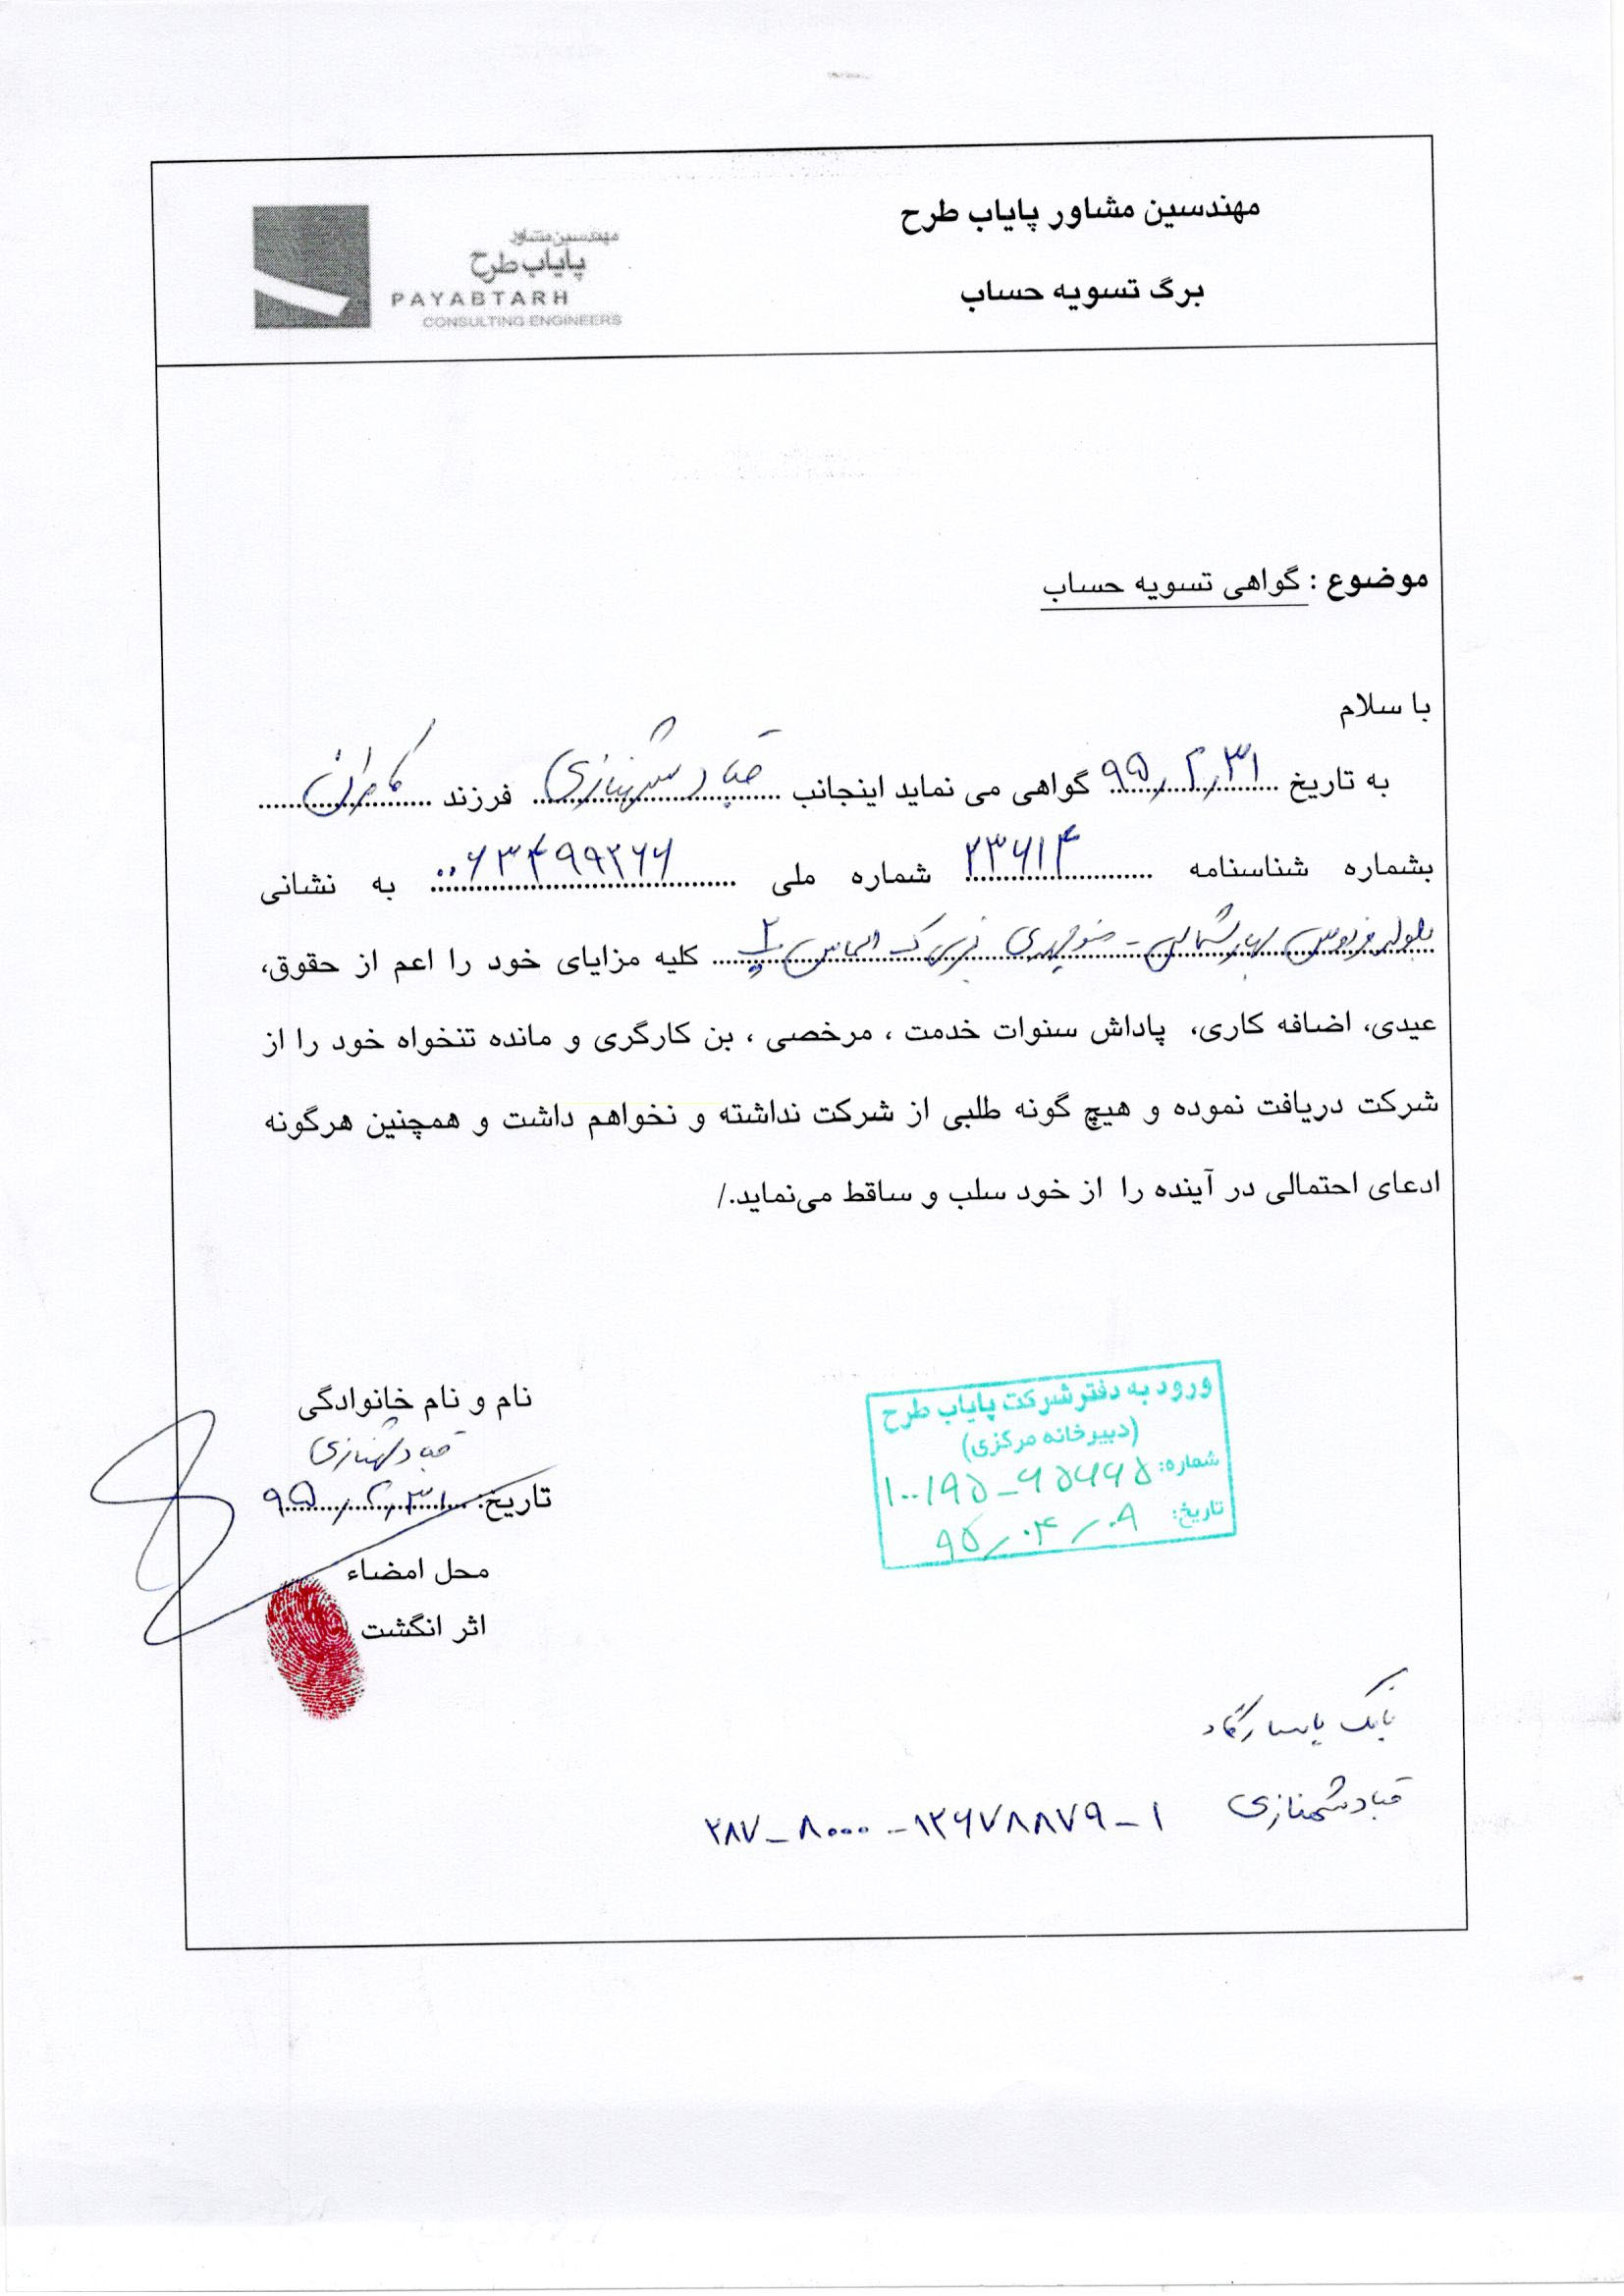 مهندسین مشاور پایاب طرح
برگ تسویه حساب
مهندسین مشاور
پایاب طرح
PAYABTARH
CONSULTING ENGINEERS
موضوع : گواهی تسویه حساب
با سلام
به تاریخ ۹۵/۲/۳۱ گواهی می نماید اینجانب قباد شهنازی فرزند کامران
بشماره شناسنامه ۲۳۶۱۴ شماره ملی ۰۰۶۳۴۹۹۲۶۶ به نشانی
بلوار فردوس الماس کلیه مزایای خود را اعم از حقوق،
عیدی، اضافه کاری، پاداش سنوات خدمت ، مرخصی ، بن کارگری و مانده تنخواه خود را از
شرکت دریافت نموده و هیچ گونه طلبی از شرکت نداشته و نخواهم داشت و همچنین هرگونه
ادعای احتمالی در آینده را از خود سلب و ساقط می‌نماید./
نام و نام خانوادگی
قباد شهنازی
تاریخ: ۹۵/۲/۳۱
محل امضاء
اثر انگشت
ورود به دفتر شرکت پایاب طرح
(دبیرخانه مرکزی)
شماره:
تاریخ: ۹۵/۰۴/۰۹
بانک پاسارگاد
قباد شهنازی ۲۸۷-۸۰۰۰-۱۲۶۷۸۸۷۹-۱